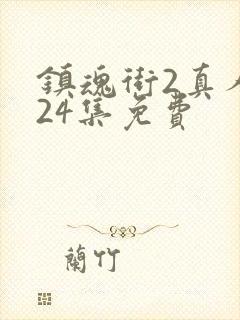 鎮魂街2真人
24集免費
蘭竹